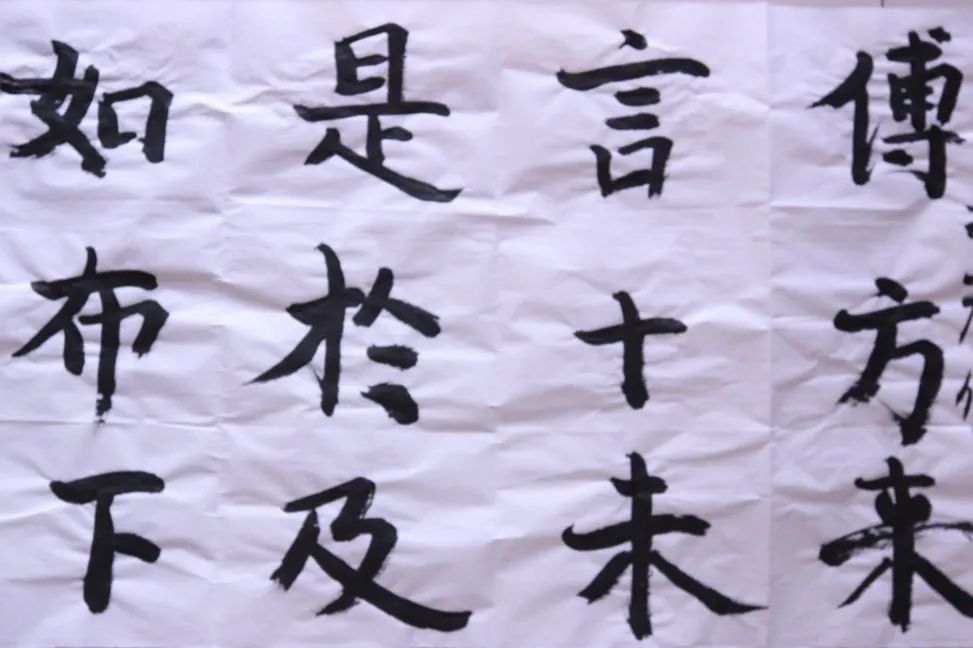 傅方来
言十未
是於及
如布下